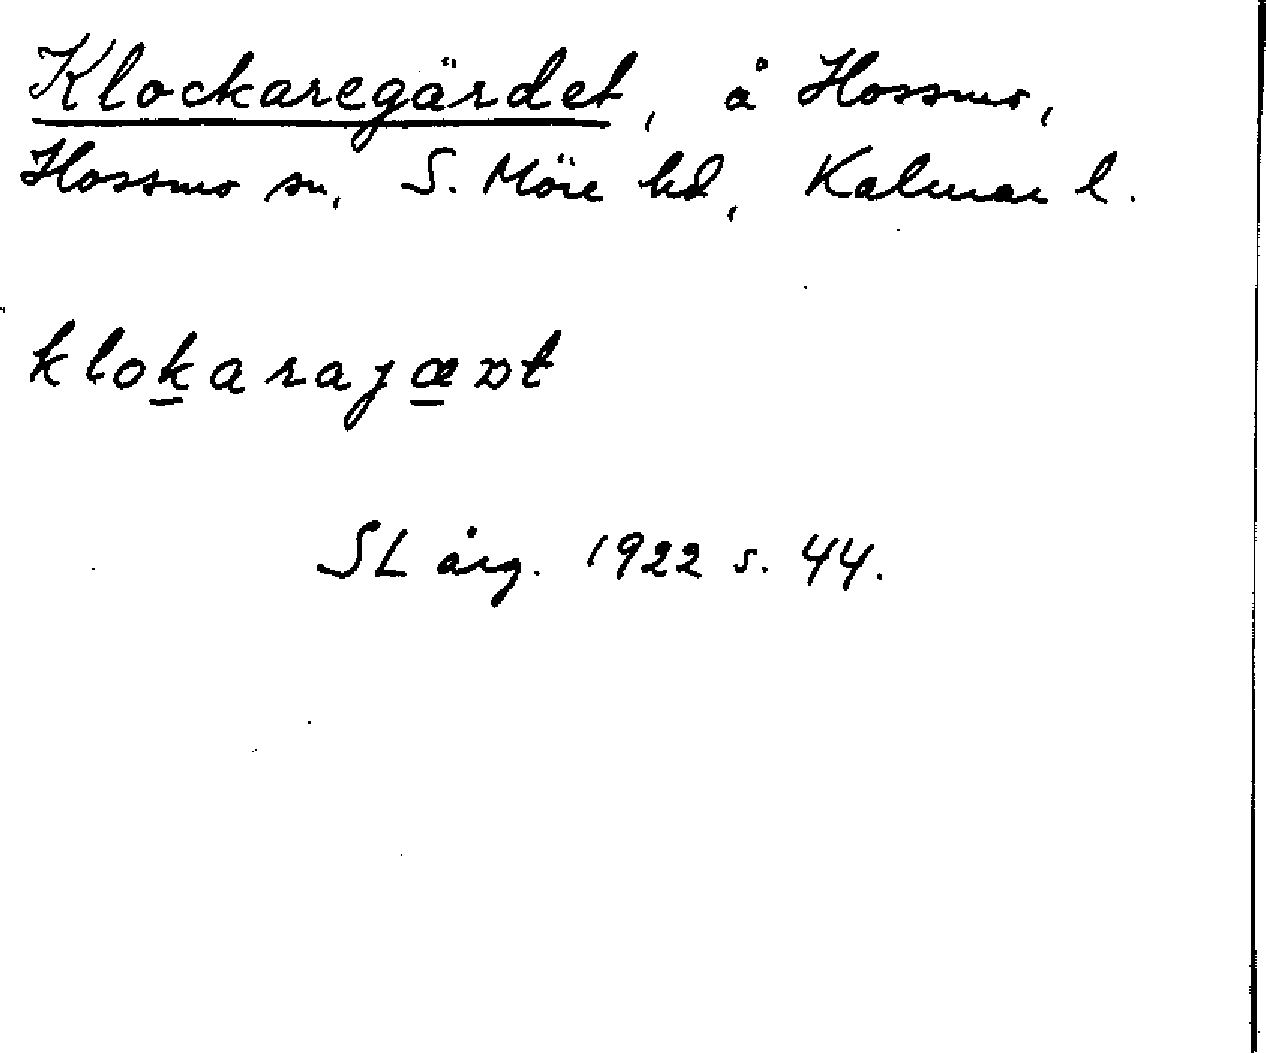 Klockaregärdet, å Hossmo,
Hossmo sn, S. Möre hd, Kalmar l.
klokarajæꝛt
SL årg. 1922 s. 44.